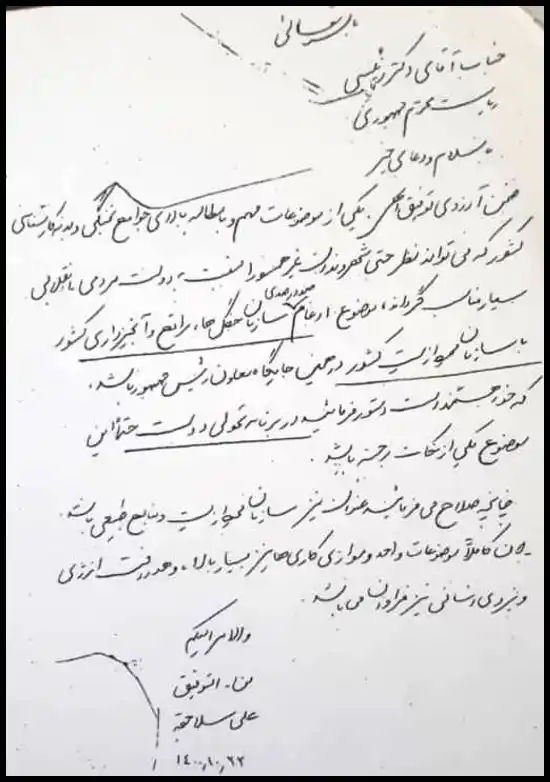 باسمه تعالی
جناب آقای دکتر رئیسی
ریاست محترم جمهوری
با سلام و دعای خیر
ضمن آرزوی توفیق الهی. یکی از موضوعات مهم و با مطالبه بالای جوامع نخبگی و بدنه کارشناسی
کشور که می تواند نظر حتی شهروندان غیر همسو را نسبت به دولت مردمی و انقلابی
بسیار مناسب گرداند، موضوع ادغام صد در صدی سازمان جنگل ها، مراتع و آبخیزداری کشور
با سازمان محیط زیست کشور در همین جایگاه معاون رئیس جمهور باشد.
که خواهشمند است دستور فرمائید در برنامه تحولی دولت حتماً این
موضوع یکی از نکات برجسته باشد.
چنانچه صلاح می فرمائید عنوان نیز سازمان محیط زیست و منابع طبیعی باشد.
چون کاملاً موضوعات واحد و موازی کاری ها نیز بسیار بالا، و هدررفت انرژی
و نیروی انسانی نیز فراوان می باشد.
والامر الیکم
و من ا... التوفیق
علی سلاجقه
۱۴۰۰،۱۰،۲۲